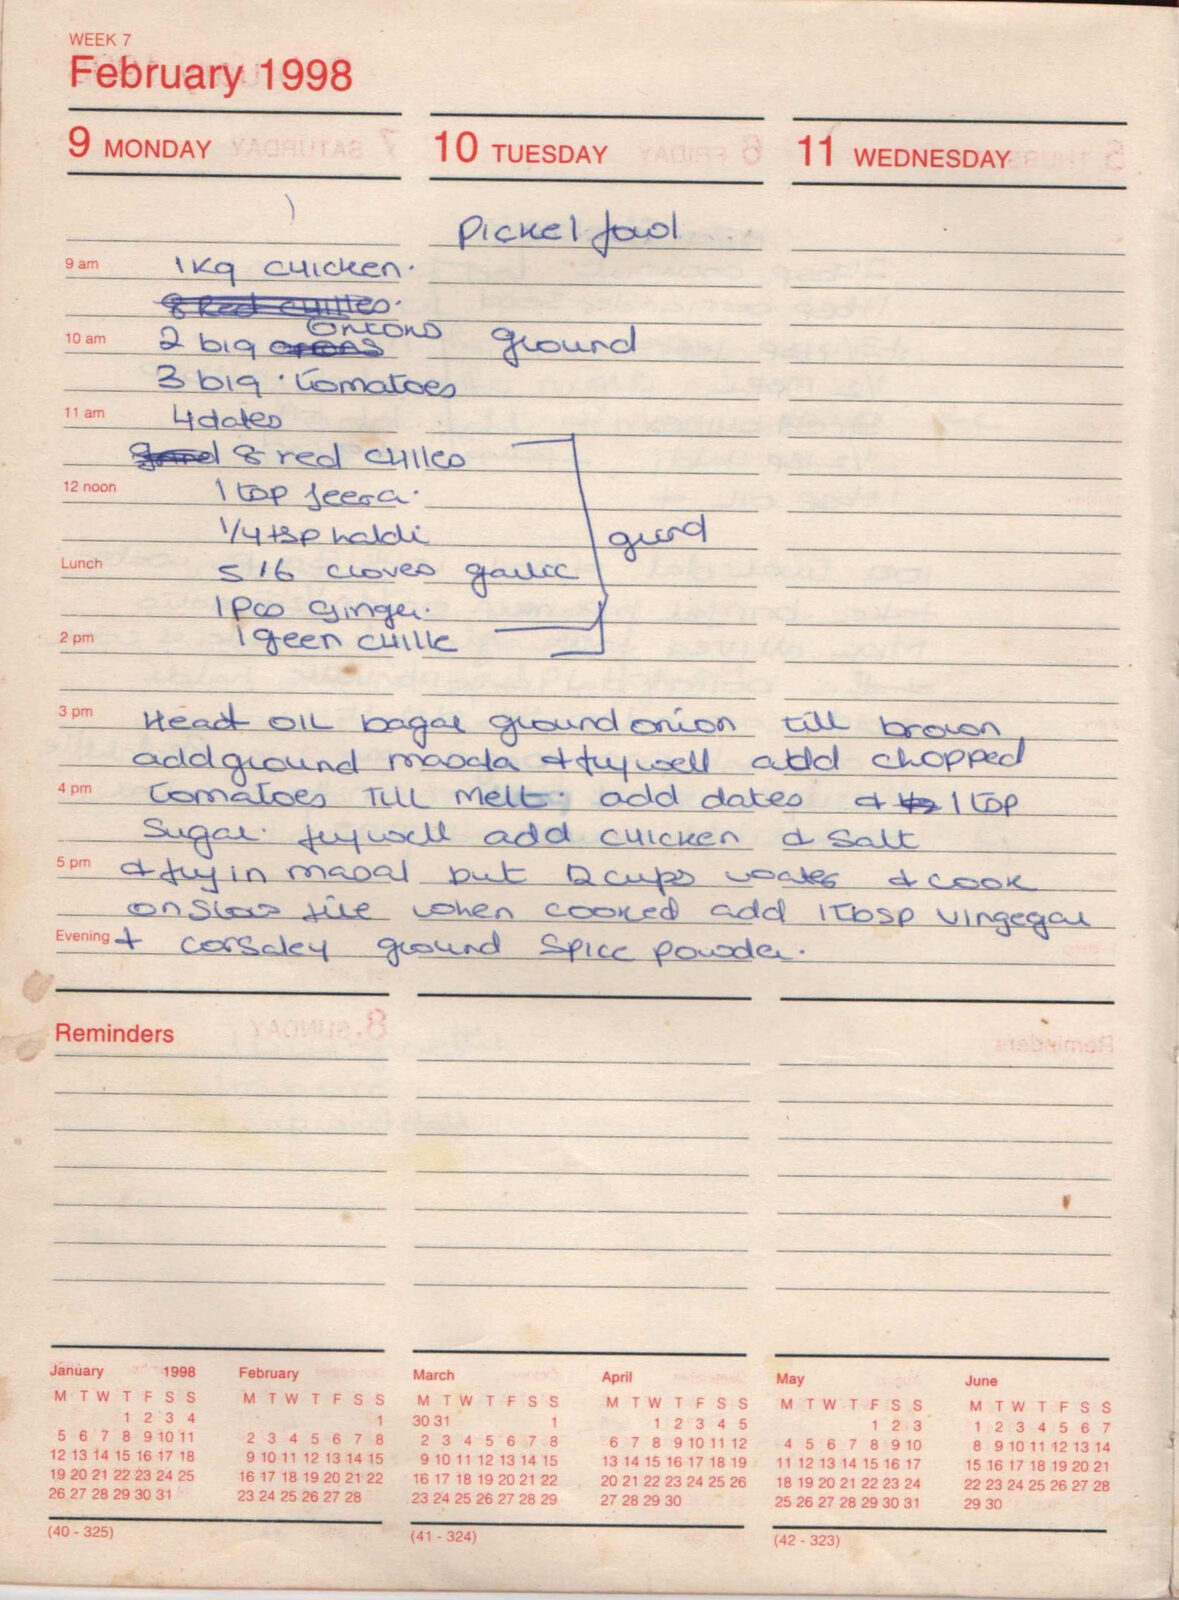 WEEK 7
February 1998
9 MONDAY
10 TUESDAY
11 WEDNESDAY
Pickel fowl
9 am 1 Kg chicken.
8 Red chilles.
10 am 2 big onions ground
3 big. tomatoes
11 am 4 dates
8 red chilles
12 noon 1 tsp jeera.
1/4 tsp haldi
grind
Lunch 5 1 6 cloves garlic
1 Pco ginger.
2 pm 1 geen chille
3 pm Heat oil bagar ground onion till brown
add ground masala & fry well add chopped
4 pm tomatoes till melt. add dates & 1 tsp
Sugar. fry well add chicken & salt
5 pm & fry in masal but 2 cups water & cook
on slow fire when cooked add 1 tbsp vingegar
Evening + corsaley ground spice powder.
Reminders
January 1998
M T W T F S S
1 2 3 4
5 6 7 8 9 10 11
12 13 14 15 16 17 18
19 20 21 22 23 24 25
26 27 28 29 30 31
(40 - 325)
February
M T W T F S S
1
2 3 4 5 6 7 8
9 10 11 12 13 14 15
16 17 18 19 20 21 22
23 24 25 26 27 28
March
M T W T F S S
30 31 1
2 3 4 5 6 7 8
9 10 11 12 13 14 15
16 17 18 19 20 21 22
23 24 25 26 27 28 29
(41 - 324)
April
M T W T F S S
1 2 3 4 5
6 7 8 9 10 11 12
13 14 15 16 17 18 19
20 21 22 23 24 25 26
27 28 29 30
May
M T W T F S S
1 2 3
4 5 6 7 8 9 10
11 12 13 14 15 16 17
18 19 20 21 22 23 24
25 26 27 28 29 30 31
(42 - 323)
June
M T W T F S S
1 2 3 4 5 6 7
8 9 10 11 12 13 14
15 16 17 18 19 20 21
22 23 24 25 26 27 28
29 30